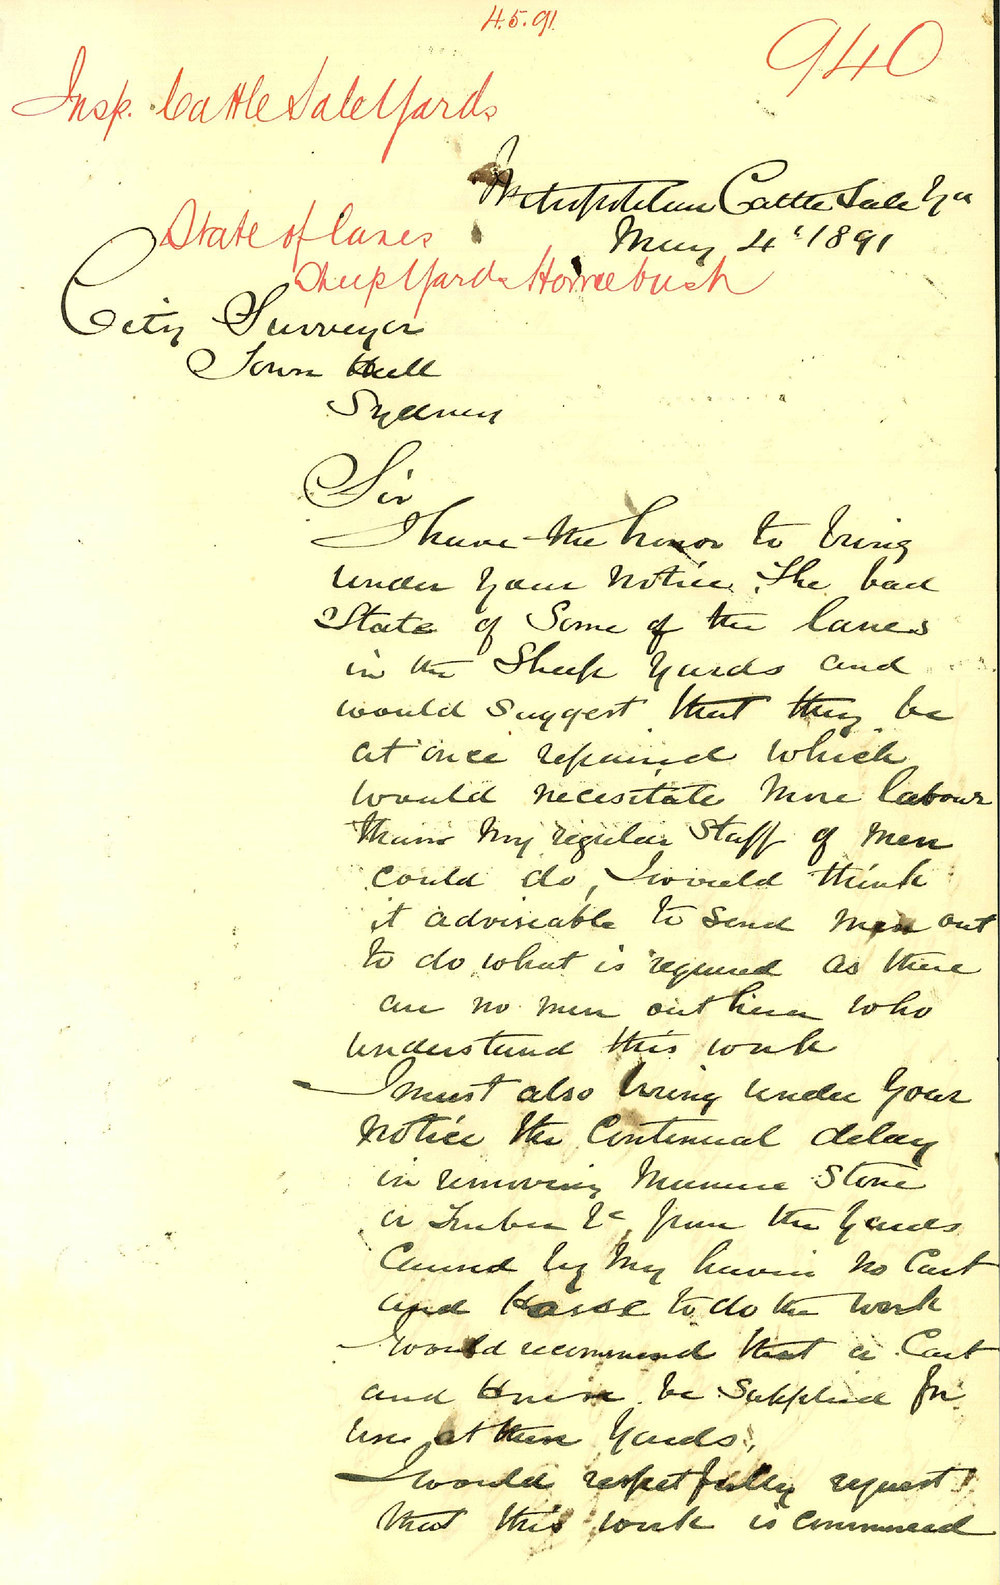 4.5.91
940
Insp. Cattle Sale Yards
Metropolitan Cattle Sale Yds
May 4' 1891
State of lanes
Sheep Yards Homebush
City Surveyor
Town Hall
Sydney
Sir
I have the honor to bring
under your notice the bad
State of Some of the lanes
in the Sheep yards and
would suggest that they be
at once repaired which
would necesitate more labour
than my regular Staff of men
could do, I would think
it adviseable to send men out
to do what is required as there
are no men out here who
understand this work
I must also bring under your
notice the Continual delay
in removing Manure Stone
or Timber &c from the yards
Caused by my having no Cart
and Horse to do the work
I would recommend that a Cart
and Horse be Supplied for
use at these yards.
I would respetfully request
that this work is commenced